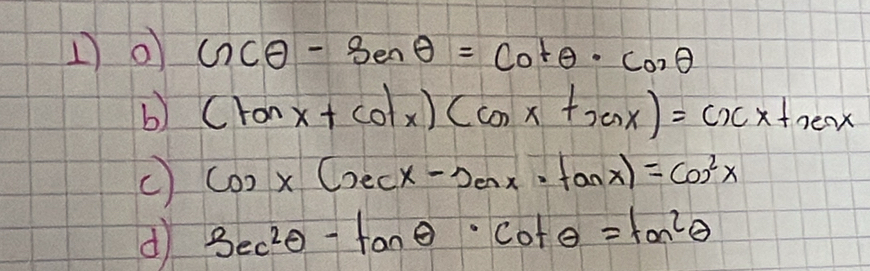 1) a) csc θ - sen θ = cot θ · cos θ
b) (tan x + cot x) (cos x + sen x) = csc x + sec x
c) cos x (sec x - sen x · tan x) = cos²x
d) sec²θ - tan θ · cot θ = tan²θ